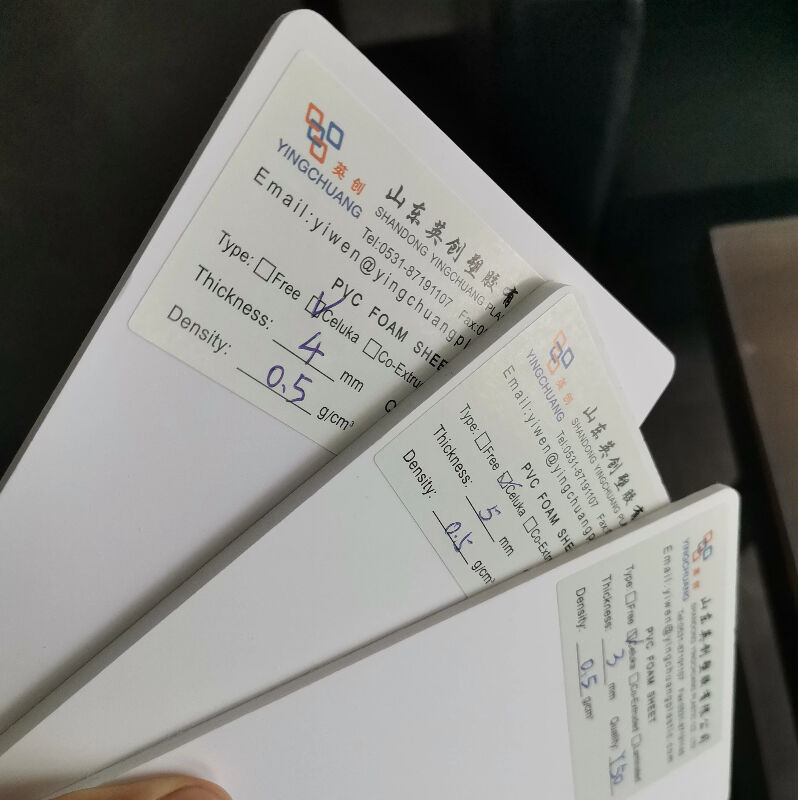 YINGCHUANG 英创
山东英创塑胶有
SHANDONG YINGCHUANG PLA
Tel:0531-87191107 Fax:0
Email:yiwen@yingchuangpl
PVC FOAM SHEE
Type: Free Celuka Co-Extru
Thickness: 4 mm
Density: 0.5 g/cm³
YINGCHUANG 英创
山东英创塑胶有
SHANDONG YINGCHUANG PLA
Tel:0531-87191107 Fax
Email:yiwen@yingchuangp
PVC FOAM SHE
Type: Free Celuka Co-Extr
Thickness: 5 mm
Density: 0.5 g/cm³
YINGCHUANG 英创
山东英创塑胶有限公司
SHANDONG YINGCHUANG PLASTIC CO., LTD
Tel:0531-87191107
Email:yiwen@yingchuangplastic.com
PVC FOAM SHEET
Type: Free Celuka Co-Extruded Laminated
Thickness: 3 mm Quality: Y50
Density: 0.5 g/cm³